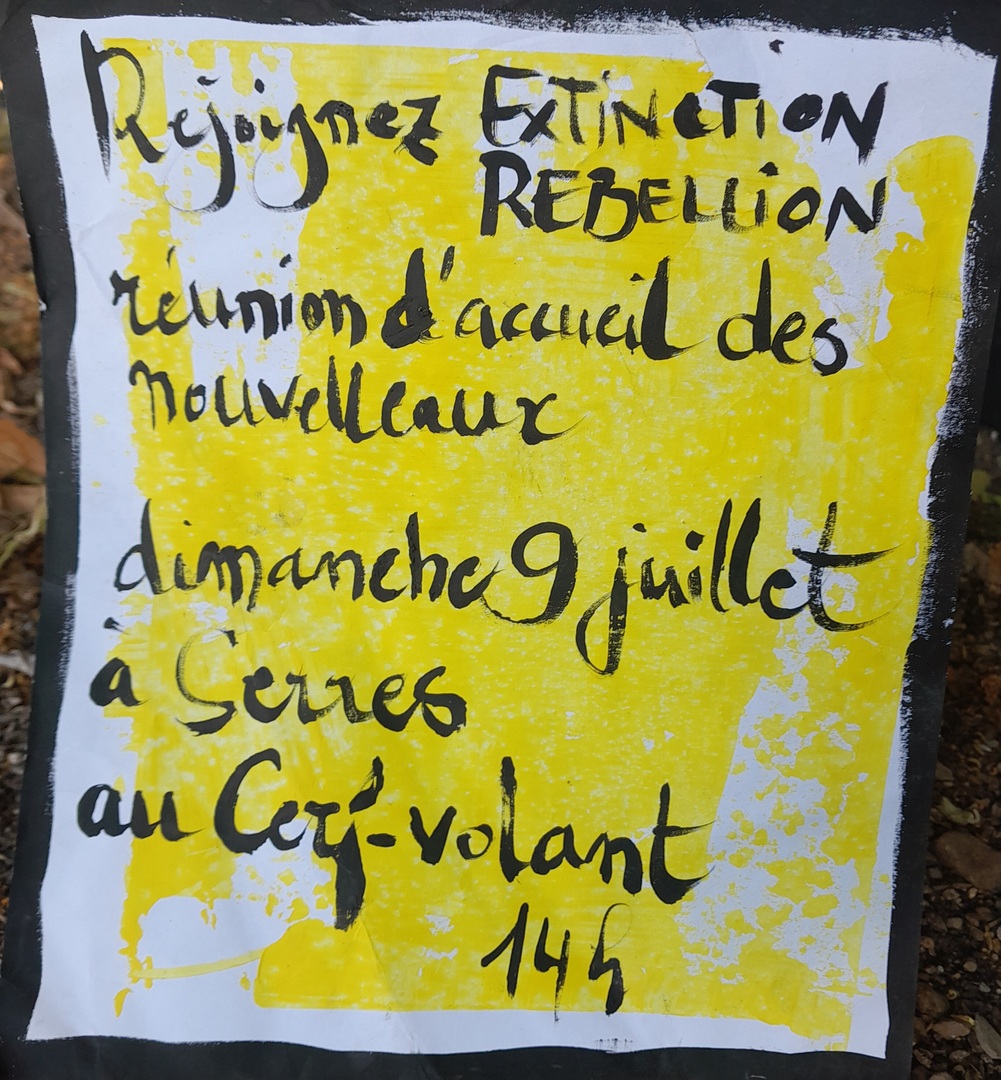 Rejoignez EXTINCTION
REBELLION
réunion d'accueil des
nouvelleaux
dimanche 9 juillet
à Serres
au Cerf-volant
14h